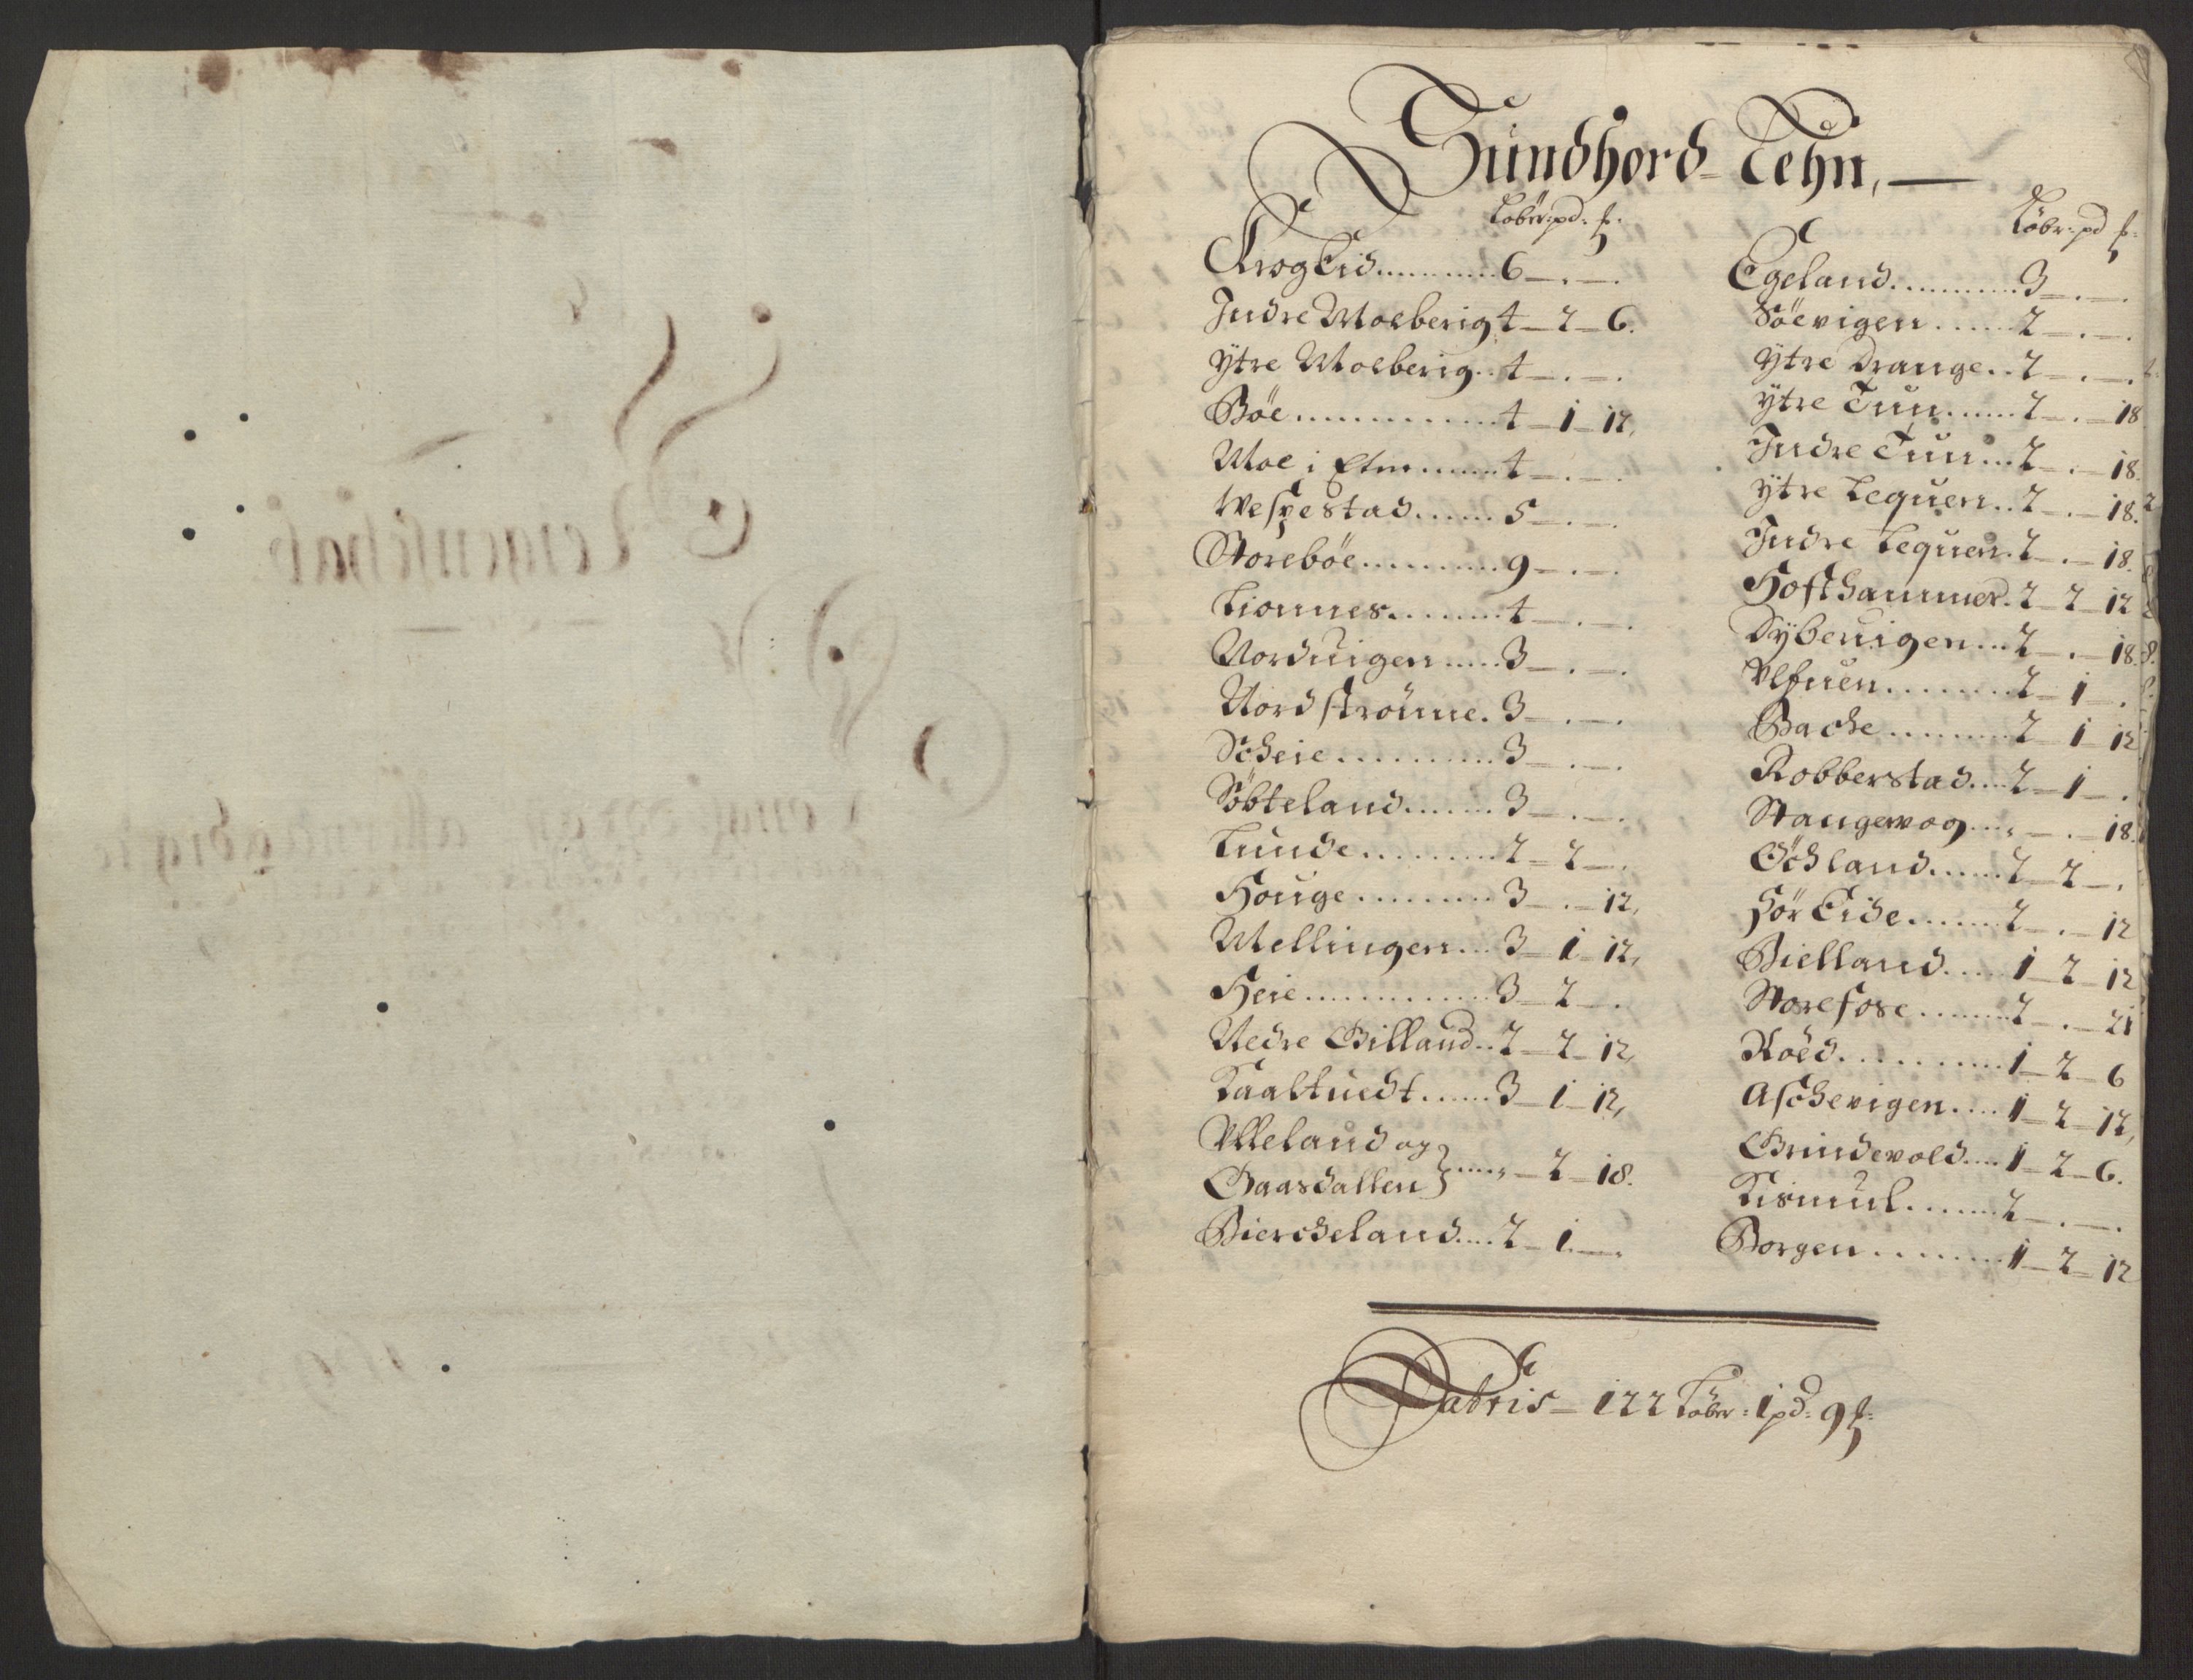 Sundhord-Lehn,
Løber: pd: ß:
Krog Eid 6 - . - .
Indre Moeberig 4 - 2 - 6.
Ytre Moeberig 4 - . - .
Bøe 4 - 1 - 12,
Moe i Etne 4 - . - .
Wespestad 5 - . - .
Storebøe 9 - . - .
Lionnes 4 - . - .
Norduigen 3 - . - .
Nordstrønne 3 - . - .
Scheie 3 - . - .
Søbteland 3 - . - .
Lunde 2 - 2 - .
Houge 3 - . - 12,
Mellingen 3 - 1 - 12,
Heie 3 - 2 - .
Nedre Gilland 2 - 2 - 12,
Taaltuedt 3 - 1 - 12,
Ulleland og
Gaasdallen } „ - 2 - 18.
Biercheland 2 - 1 - .
Løbr: pd ß:
Egeland 3 - . - .
Søevigen 2 - . - .
Ytre Drange 2 - . - .
Ytre Tun 2 - . - 18
Indre Tun 2 - . - 18.
Ytre Lequen 2 - . - 18.
Indre Lequen 2 - . - 18.
Hofthammer 2 - 2 - 12
Dybeuigen 2 - . - 18.
Ulfuen 2 - 1 - .
Bache 2 - 1 - 12
Robberstad 2 - 1 - .
Stangewog „ - . - 18.
Øchland 2 - 2 - .
Sør Eide 2 - . - 12
Bielland 1 - 2 - 12
Storefose 2 - . - 21
Røed 1 - 2 - 6
Aschevigen 1 - 2 - 12,
Grindevold 1 - 2 - 6.
Tismul 2 - . - .
Borgen 1 - 2 - 12
Latris - 122 Løber: 1 pd: 9 ß: